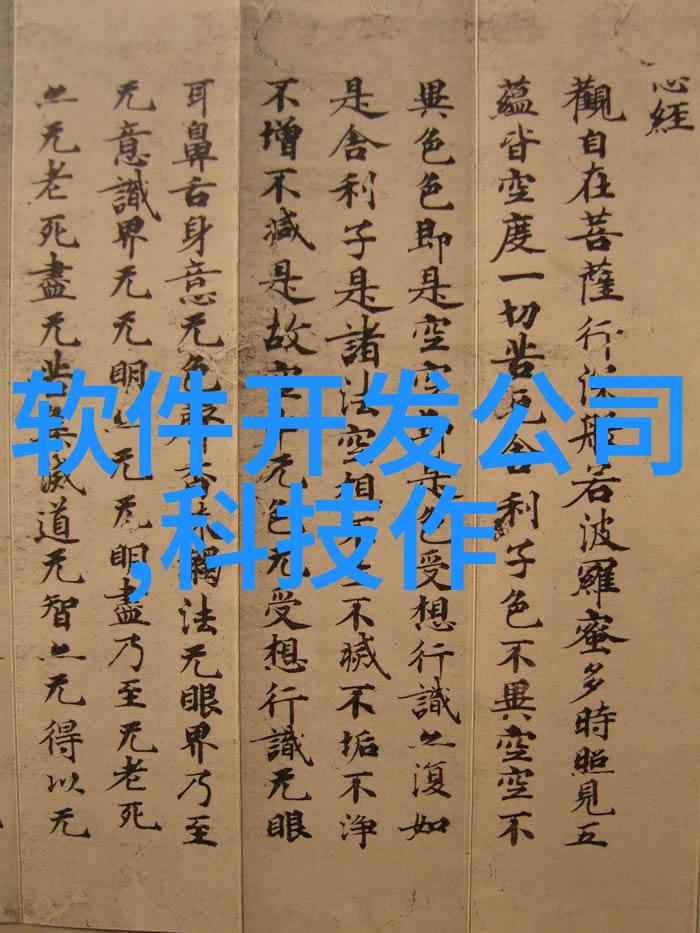 心經
觀自在菩薩行深般若波羅蜜多時照見五
蘊皆空度一切苦厄舍利子色不異空空不
異色色即是空空即是色受想行識亦復如
是舍利子是諸法空相不不滅不垢不淨
不增不減是故空中无色无受想行識无眼
耳鼻舌身意无色聲香味觸法无眼界乃至
无意識界无无明亦无无明盡乃至无老死
亦无老死盡无苦集滅道无智亦无得以无
软件开发公司
,科技作